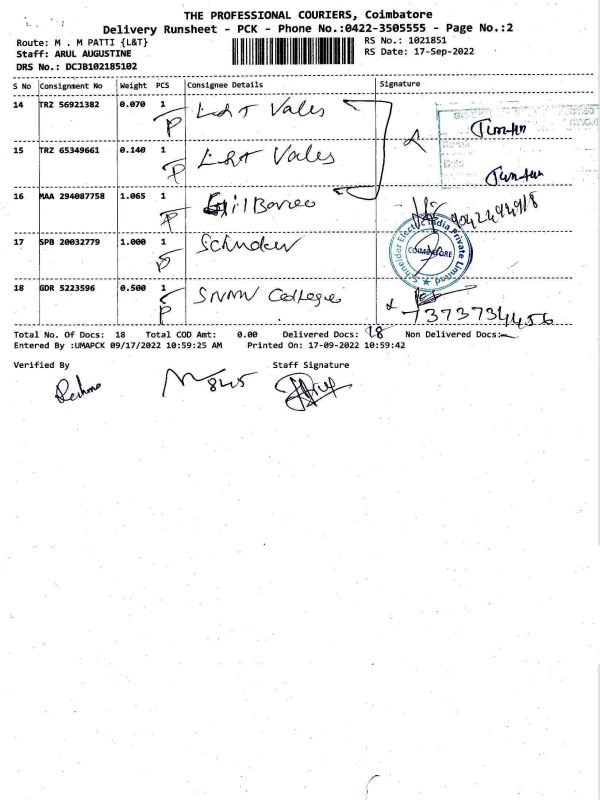 THE PROFESSIONAL COURIERS, Coimbatore
Delivery Runsheet - PCK - Phone No.:0422-3505555 - Page No.:2
Route: M . M PATTI {L&T} RS No.: 1021851
Staff: ARUL AUGUSTINE RS Date: 17-Sep-2022
DRS No.: DCJB102185102
S No Consignment No Weight PCS Consignee Details Signature
14 TRZ 56921382 0.070 1 L&T Vales
P
15 TRZ 65349661 0.140 1 L&T Vales
P
16 MAA 294087758 1.065 1
P
17 SPB 20032779 1.000 1
P
Schneider Electric India Private Limited
COIMBATORE
18 GDR 5223596 0.500 1 SNMV Colleges
P
7373734456
Total No. Of Docs: 18 Total COD Amt: 0.00 Delivered Docs: 18 Non Delivered Docs:
Entered By :UMAPCK 09/17/2022 10:59:25 AM Printed On: 17-09-2022 10:59:42
Verified By Staff Signature